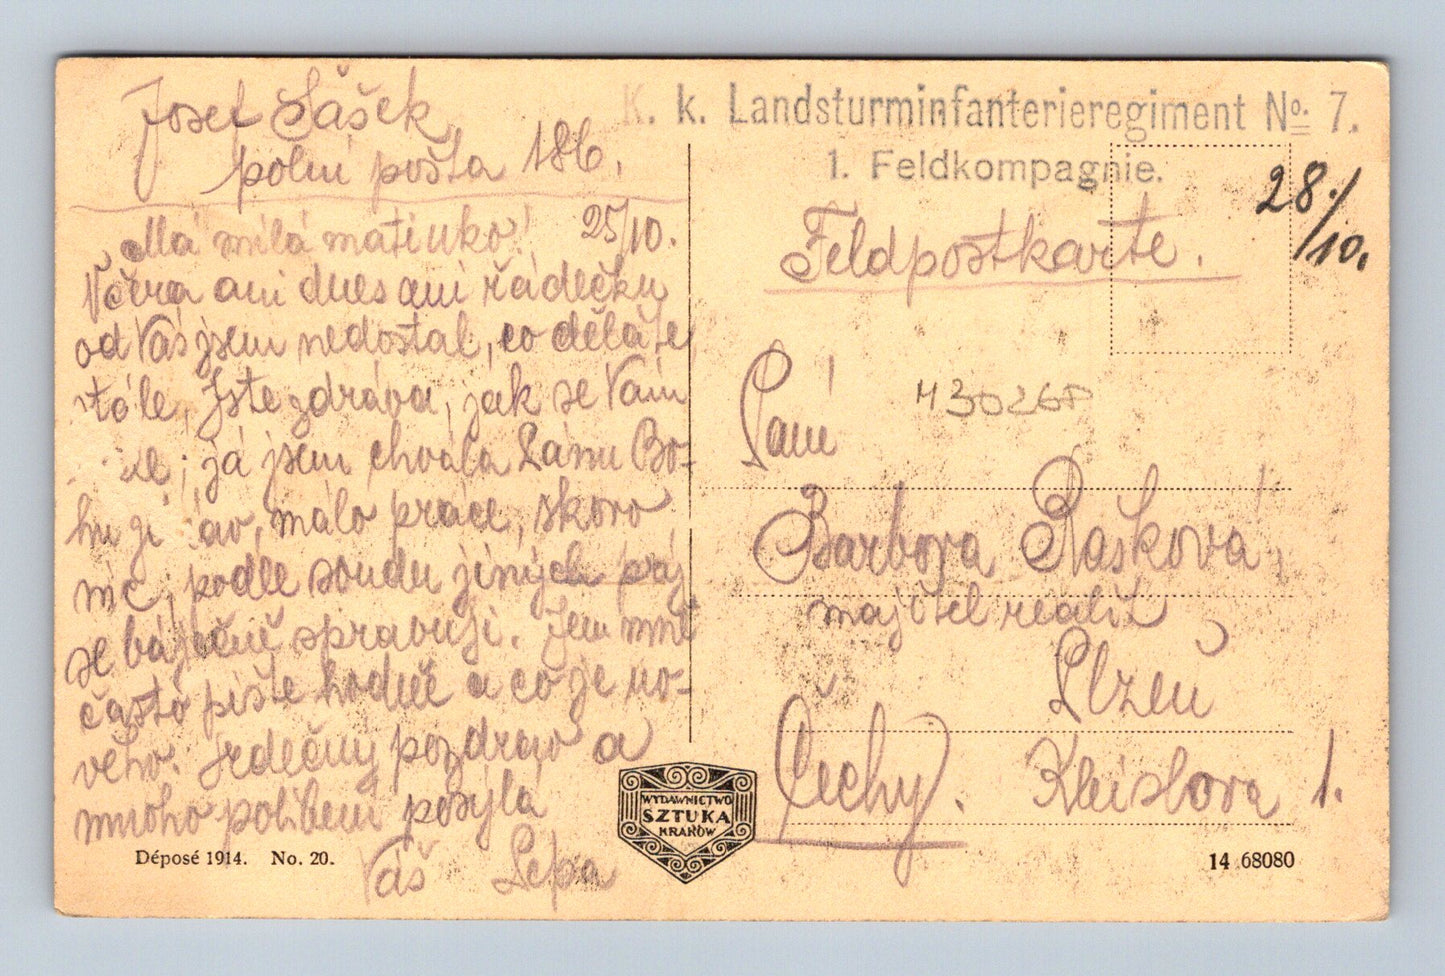 Josef Sašek,
polní pošta 186.
Má milá matinko! 25/10.
Včera ani dnes aní řádečku
od Vás jsem nedostal, co děláte
stále, Jste zdráva, jak se Vám
; já jsem chvála Pánu Bo-
hu málo práce, skoro
nic, podle soudu jiných prý
se báječně spravuji. Jen mně
často pište hodně a co je no-
vého. Srdečný pozdrav a
mnoho políbení posýlá
Váš Pepa
K. k. Landsturminfanterieregiment No. 7.
1. Feldkompagnie.
28./10.
Feldpostkarte.
M3026P
Paní
Barbora Rašková,
majitel realit
Plzeň
Čechy. Kleislova 1.
WYDAWNICTWO
SZTUKA
KRAKÓW
Déposé 1914. No. 20.
14 68080